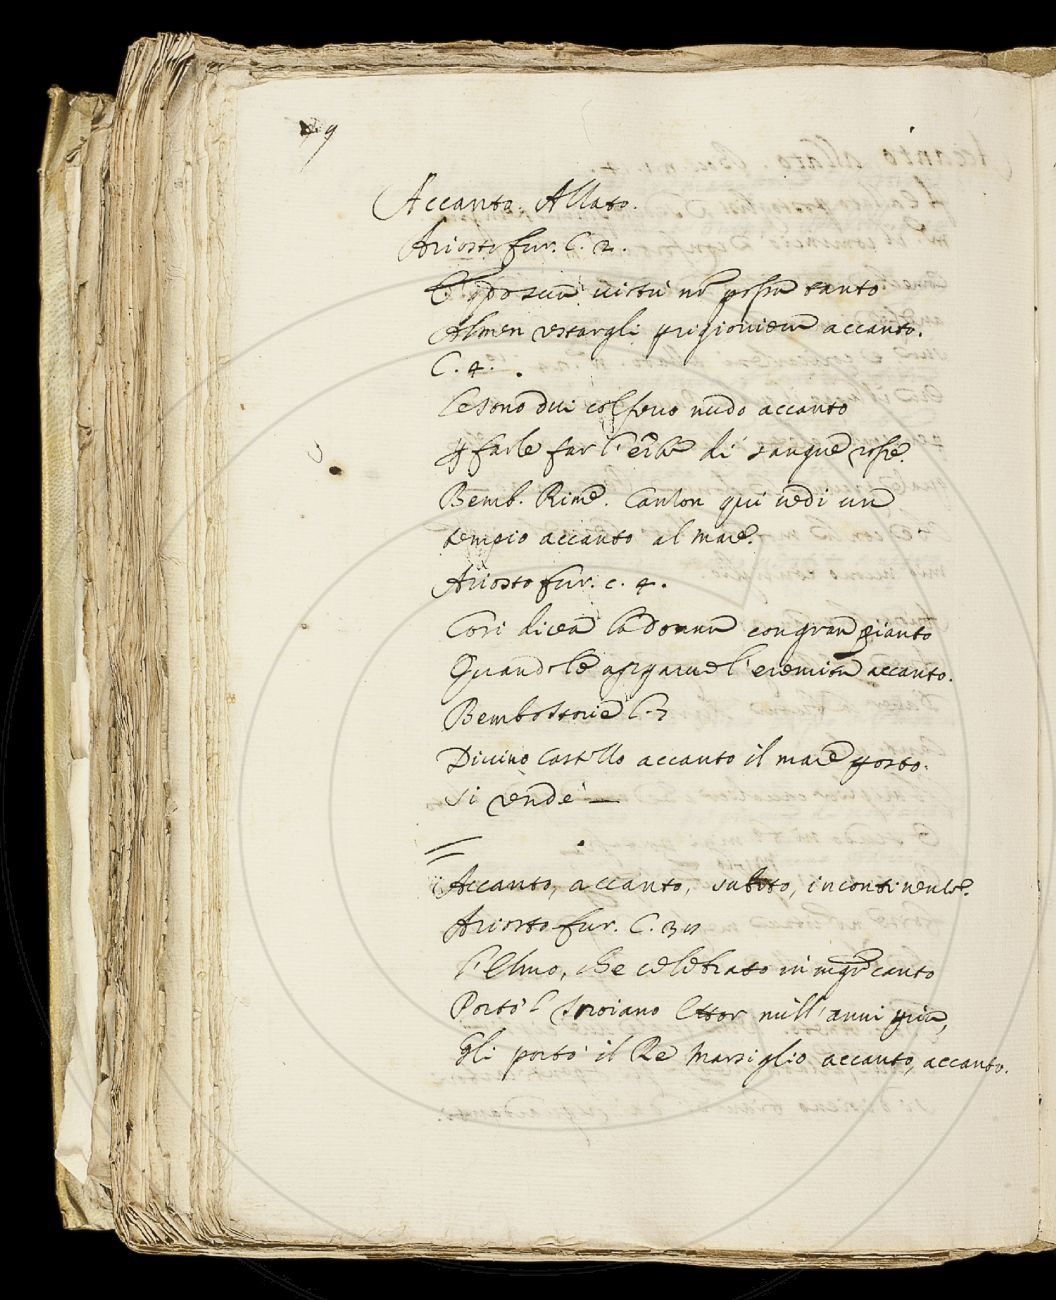 9
Accanto. Allato.
Ariosto fur. C. 2.
virtù nõ tanto
Almen restargli prigioniera accanto.
C. 4.
Le sono dui col ferro nudo accanto
p farle far l'erba di sangue rossa.
Bemb. Rime. Canzon qui vedi un
tempio accanto al mare.
Ariosto fur. c. 4.
Così dicea la donna con gran pianto
Quando le apparve l'eremita accanto.
Bembo Storie l. 3
Divino Castello accanto il mare posto.
si rende —
Accanto, accanto, subito, incontinente.
Ariosto fur. C.
L'Elmo, che celebrato in canto
Portò l Troiano Ettor mill'anni pria,
Gli portò il Re Marsiglio accanto, accanto.